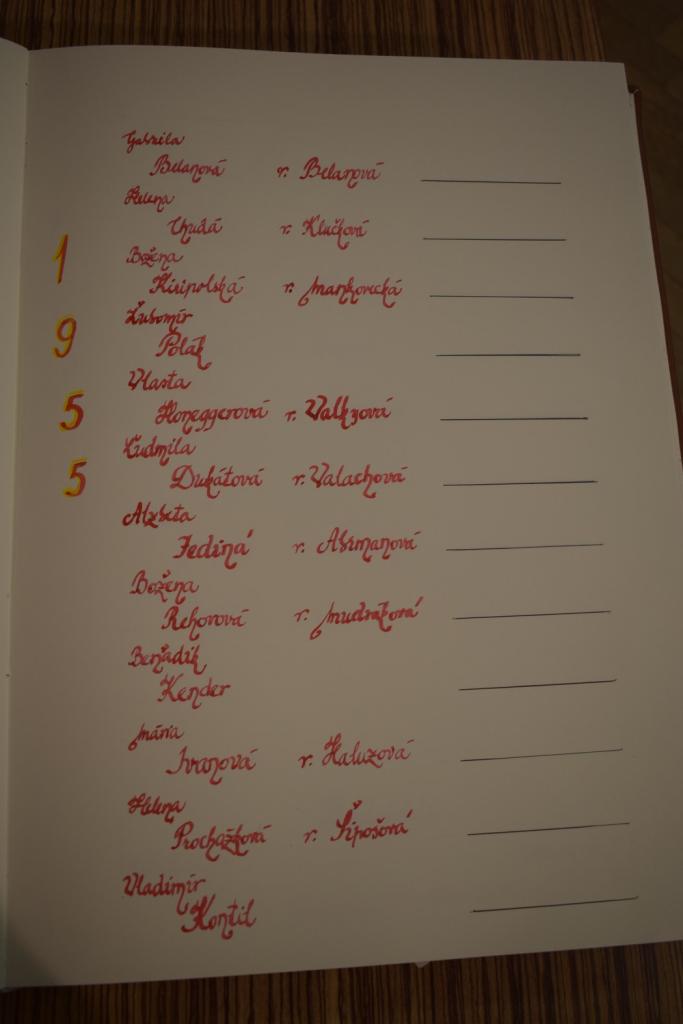 Gabriela
Belanová r. Belanová
Helena
Chudá r. Klučková
1
Božena
Kiripolská r. Mankovecká
Ľubomír
9
Polák
Vlasta
5
Honeggerová r. Valkzová
Ľudmila
5
Dukátová r. Valachová
Alzbeta
Jediná r. Asimanová
Božena
Rehorová r. Mudráková
Beňadik
Kender
Mária
Ivanová r. Haluzová
Helena
Procházková r. Šipošová
Vladimír
Kontil